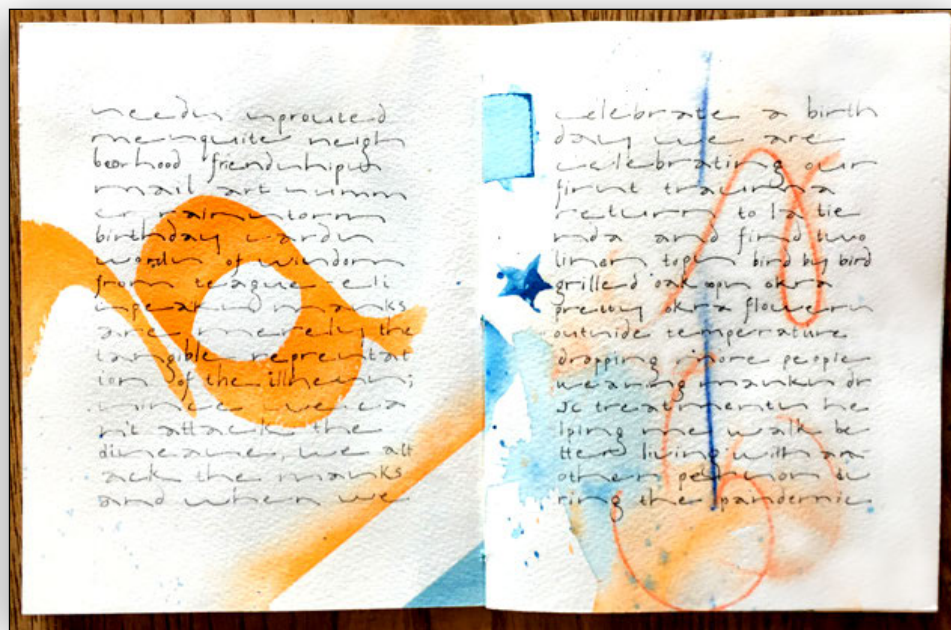 seeds sprouted
mesquite neigh
borhood friendships
mail art summ
er rainstorm
birthday cards
words of wisdom
from teague
masks
are merely the
tangible representat
ion of the illness;
since we ca
n't attack the
disease, we att
ack the masks
and when we
celebrate a birth
day we are
celebrating our
first trauma
return to la tie
nda and find two
liner tops bird by bird
grilled okra
pretty okra flowers
outside temperature
dropping more people
wearing masks dr
jc treatments he
lping me walk be
tter living with an
other person du
ring the pandemic